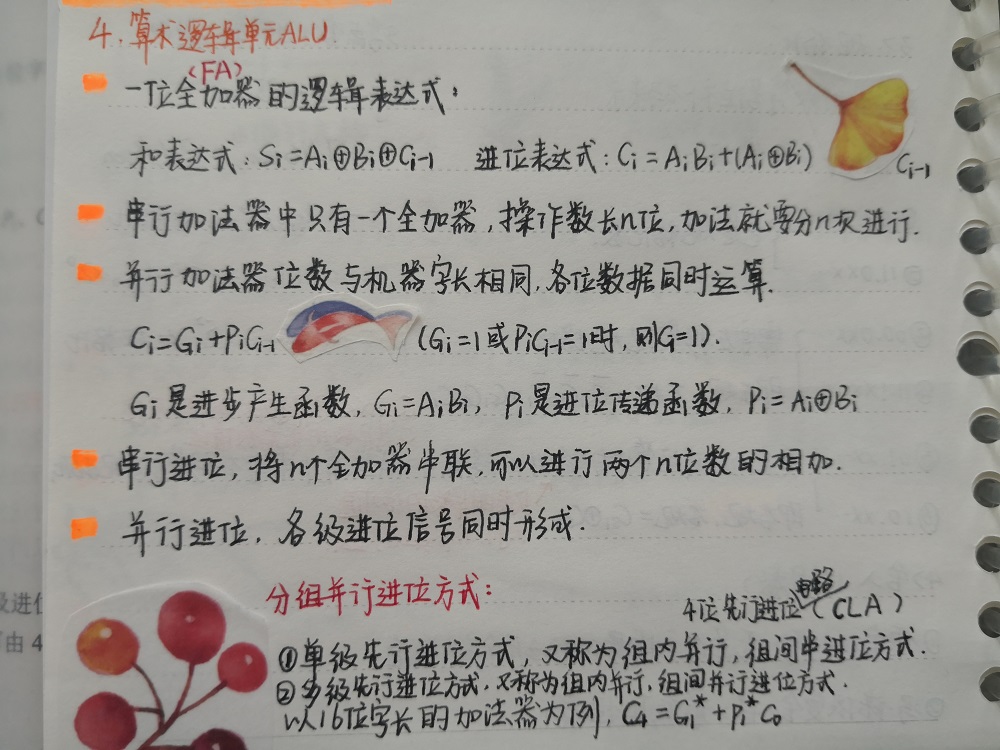 4.算术逻辑单元ALU
(FA)
一位全加器的逻辑表达式:
和表达式: Si=Ai⊕Bi⊕Ci-1 进位表达式: Ci=AiBi+(Ai⊕Bi)Ci-1
串行加法器中只有一个全加器,操作数长n位,加法就要分n次进行.
并行加法器位数与机器字长相同,各位数据同时运算.
Ci=Gi+PiCi-1 (Gi=1或PiCi-1=1时,则Ci=1).
Gi是进步产生函数, Gi=AiBi, Pi是进位传递函数, Pi=Ai⊕Bi
串行进位,将n个全加器串联,可以进行两个n位数的相加.
并行进位,各级进位信号同时形成.
分组并行进位方式:
4位先行进位电路(CLA)
①单级先行进位方式,又称为组内并行,组间串进位方式.
②多级先行进位方式,又称为组内并行,组间并行进位方式.
以16位字长的加法器为例, C4=G1*+P1*C0
及进位
由4